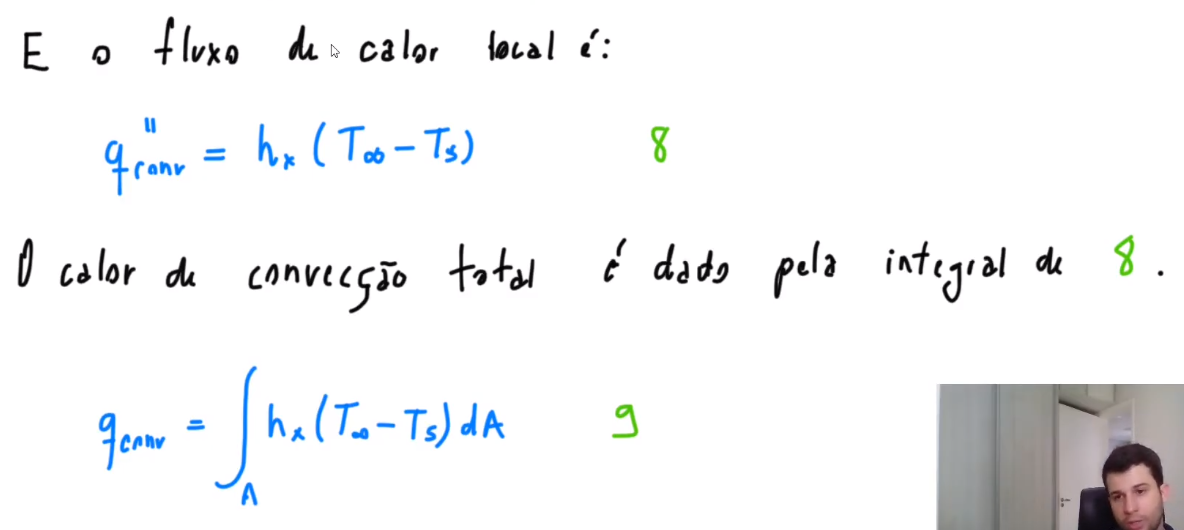 E o fluxo de calor local é:
q''conv = hx (T∞ - Ts) 8
O calor de convecção total é dado pela integral de 8.
qconv = ∫A hx (T∞ - Ts) dA 9